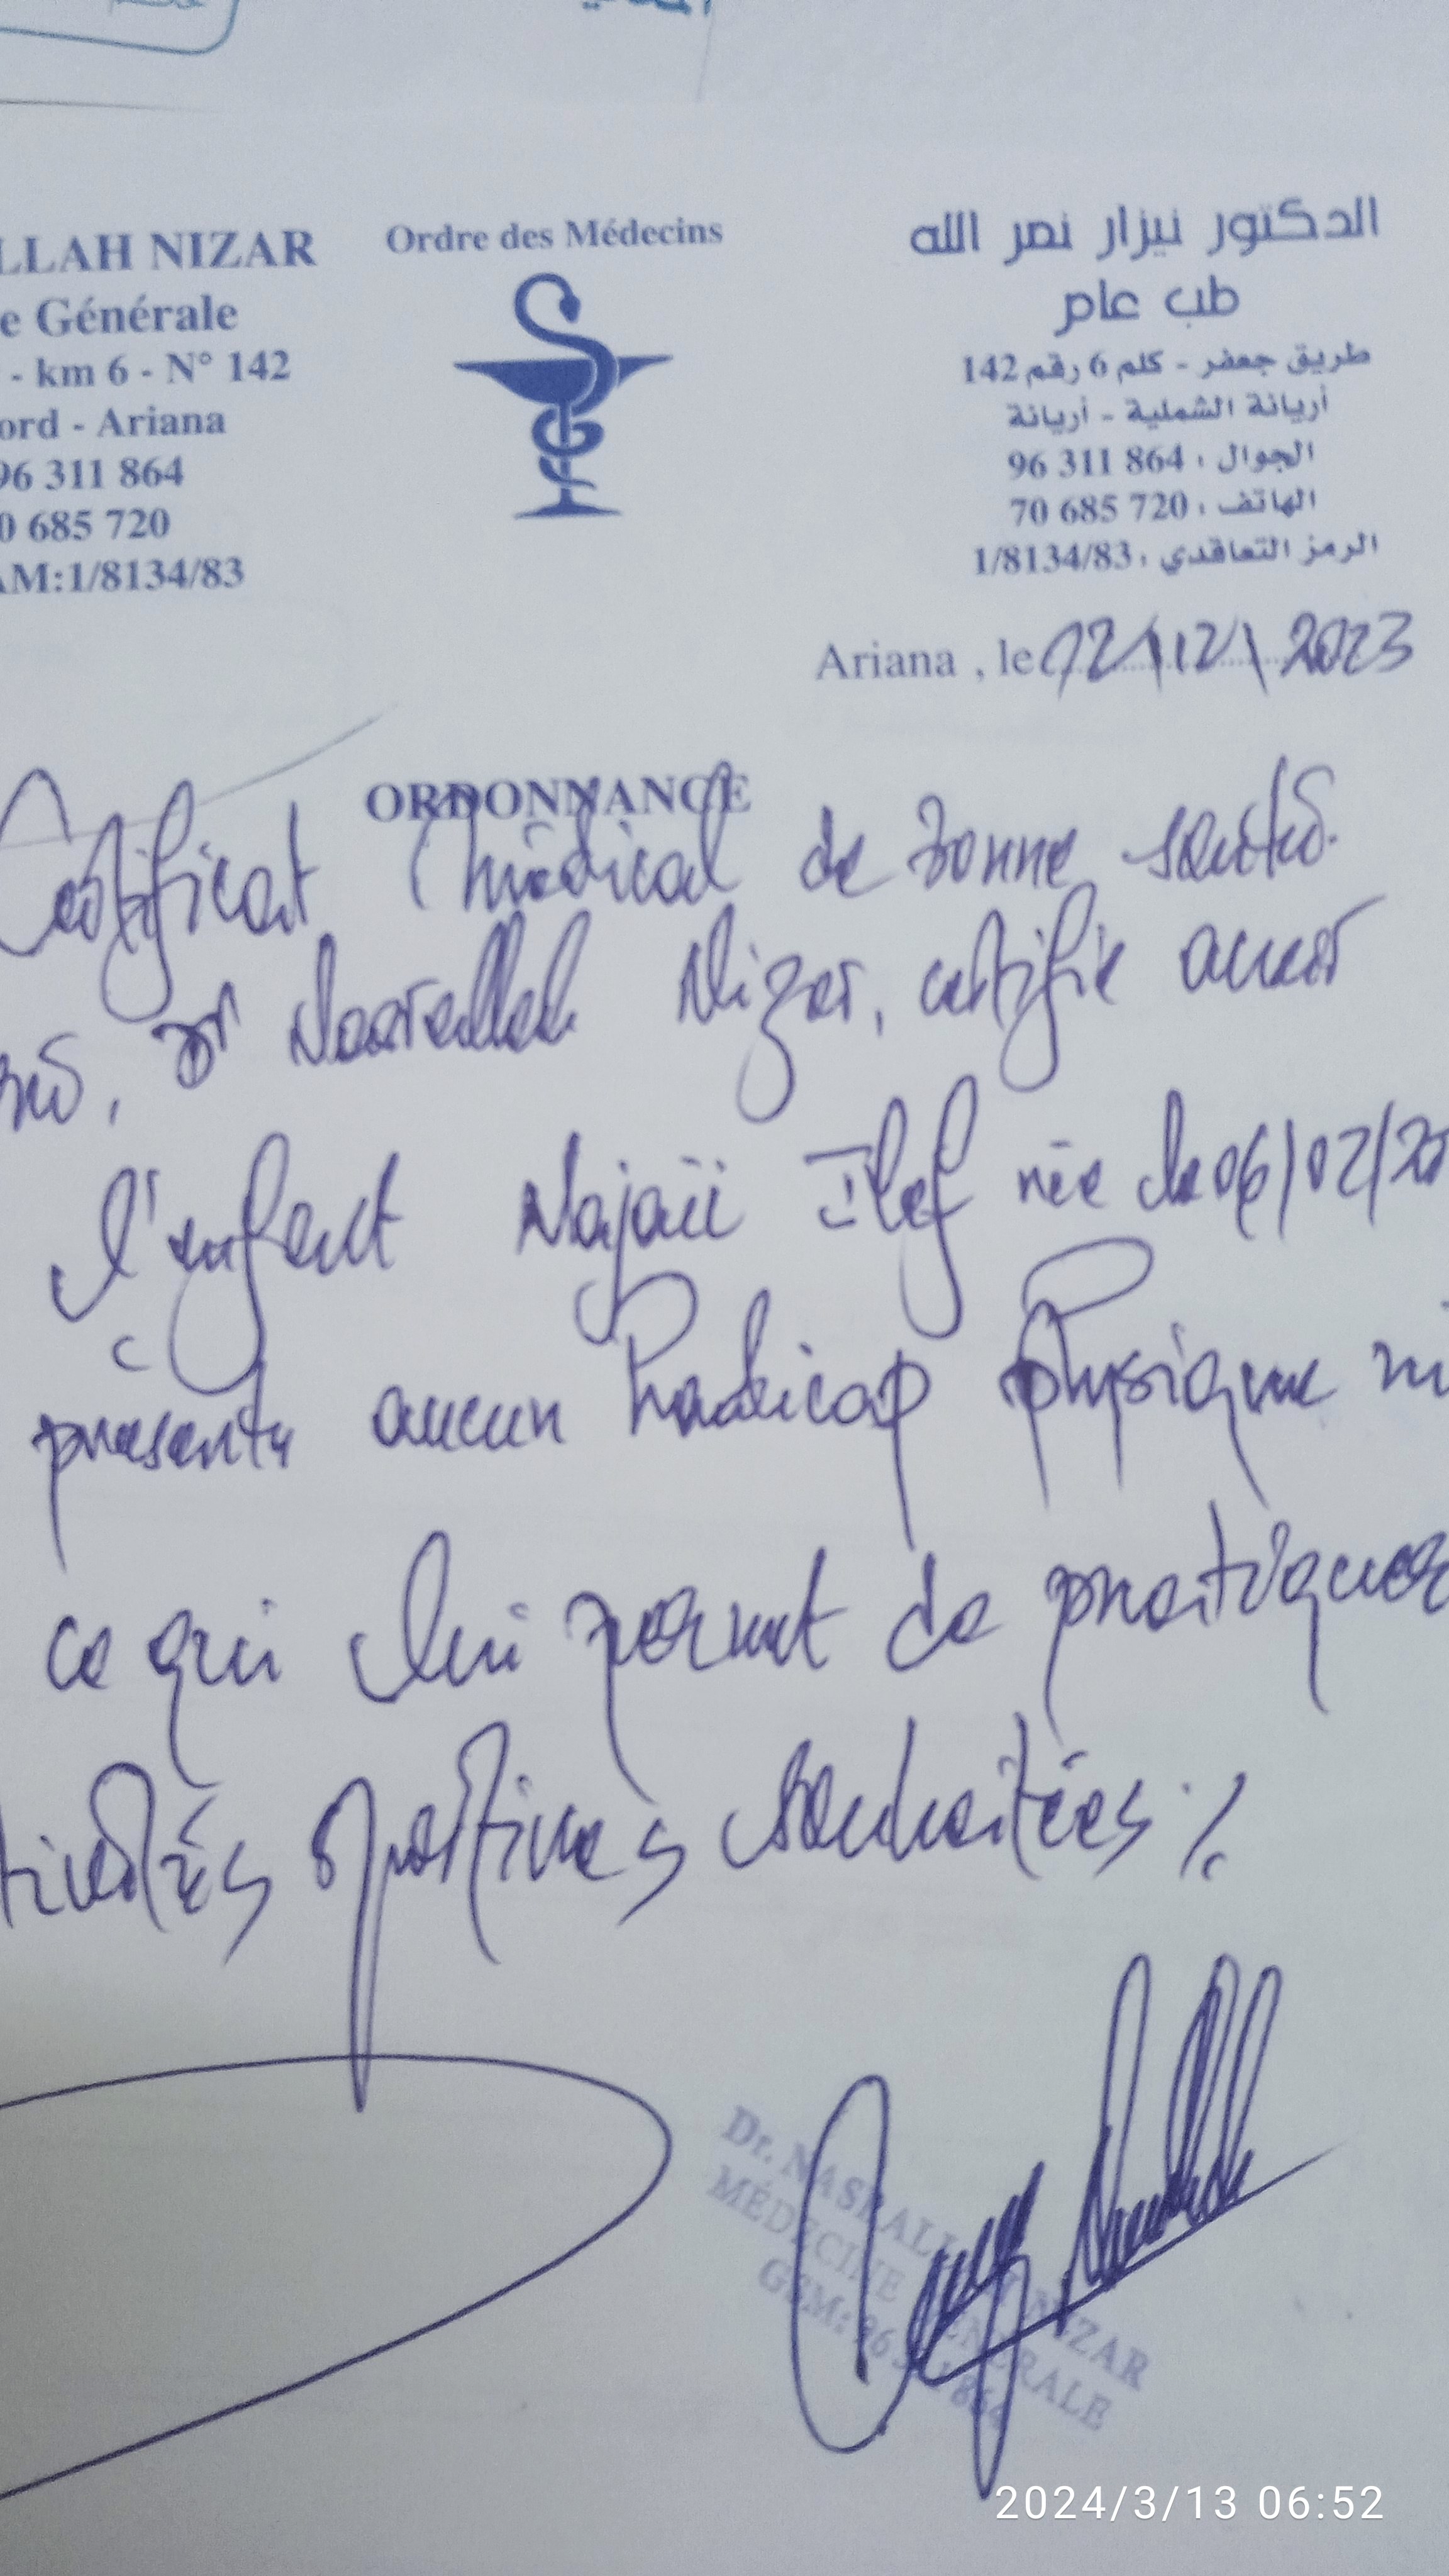 LLAH NIZAR
e Générale
- km 6 - N° 142
ord - Ariana
96 311 864
0 685 720
AM:1/8134/83
Ordre des Médecins
الدكتور نيزار نصر الله
طب عام
طريق جعفر - كلم 6 رقم 142
أريانة الشملية - أريانة
الجوال : 96 311 864
الهاتف : 70 685 720
الرمز التعاقدي : 1/8134/83
Ariana , le 02/12/2023
ORDONNANCE
Certificat médical de bonne santé.
Dr Nasrallah Nizar, certifie avoir
l'enfant Najaii Ilef née le 06/02/20
présente aucun handicap physique ni
ce qui lui permet de pratiquer
tivités sportives souhaitées ./.
Dr. NASRALLAH NIZAR
MÉDECINE GÉNÉRALE
GSM: 96 311 864
2024/3/13 06:52